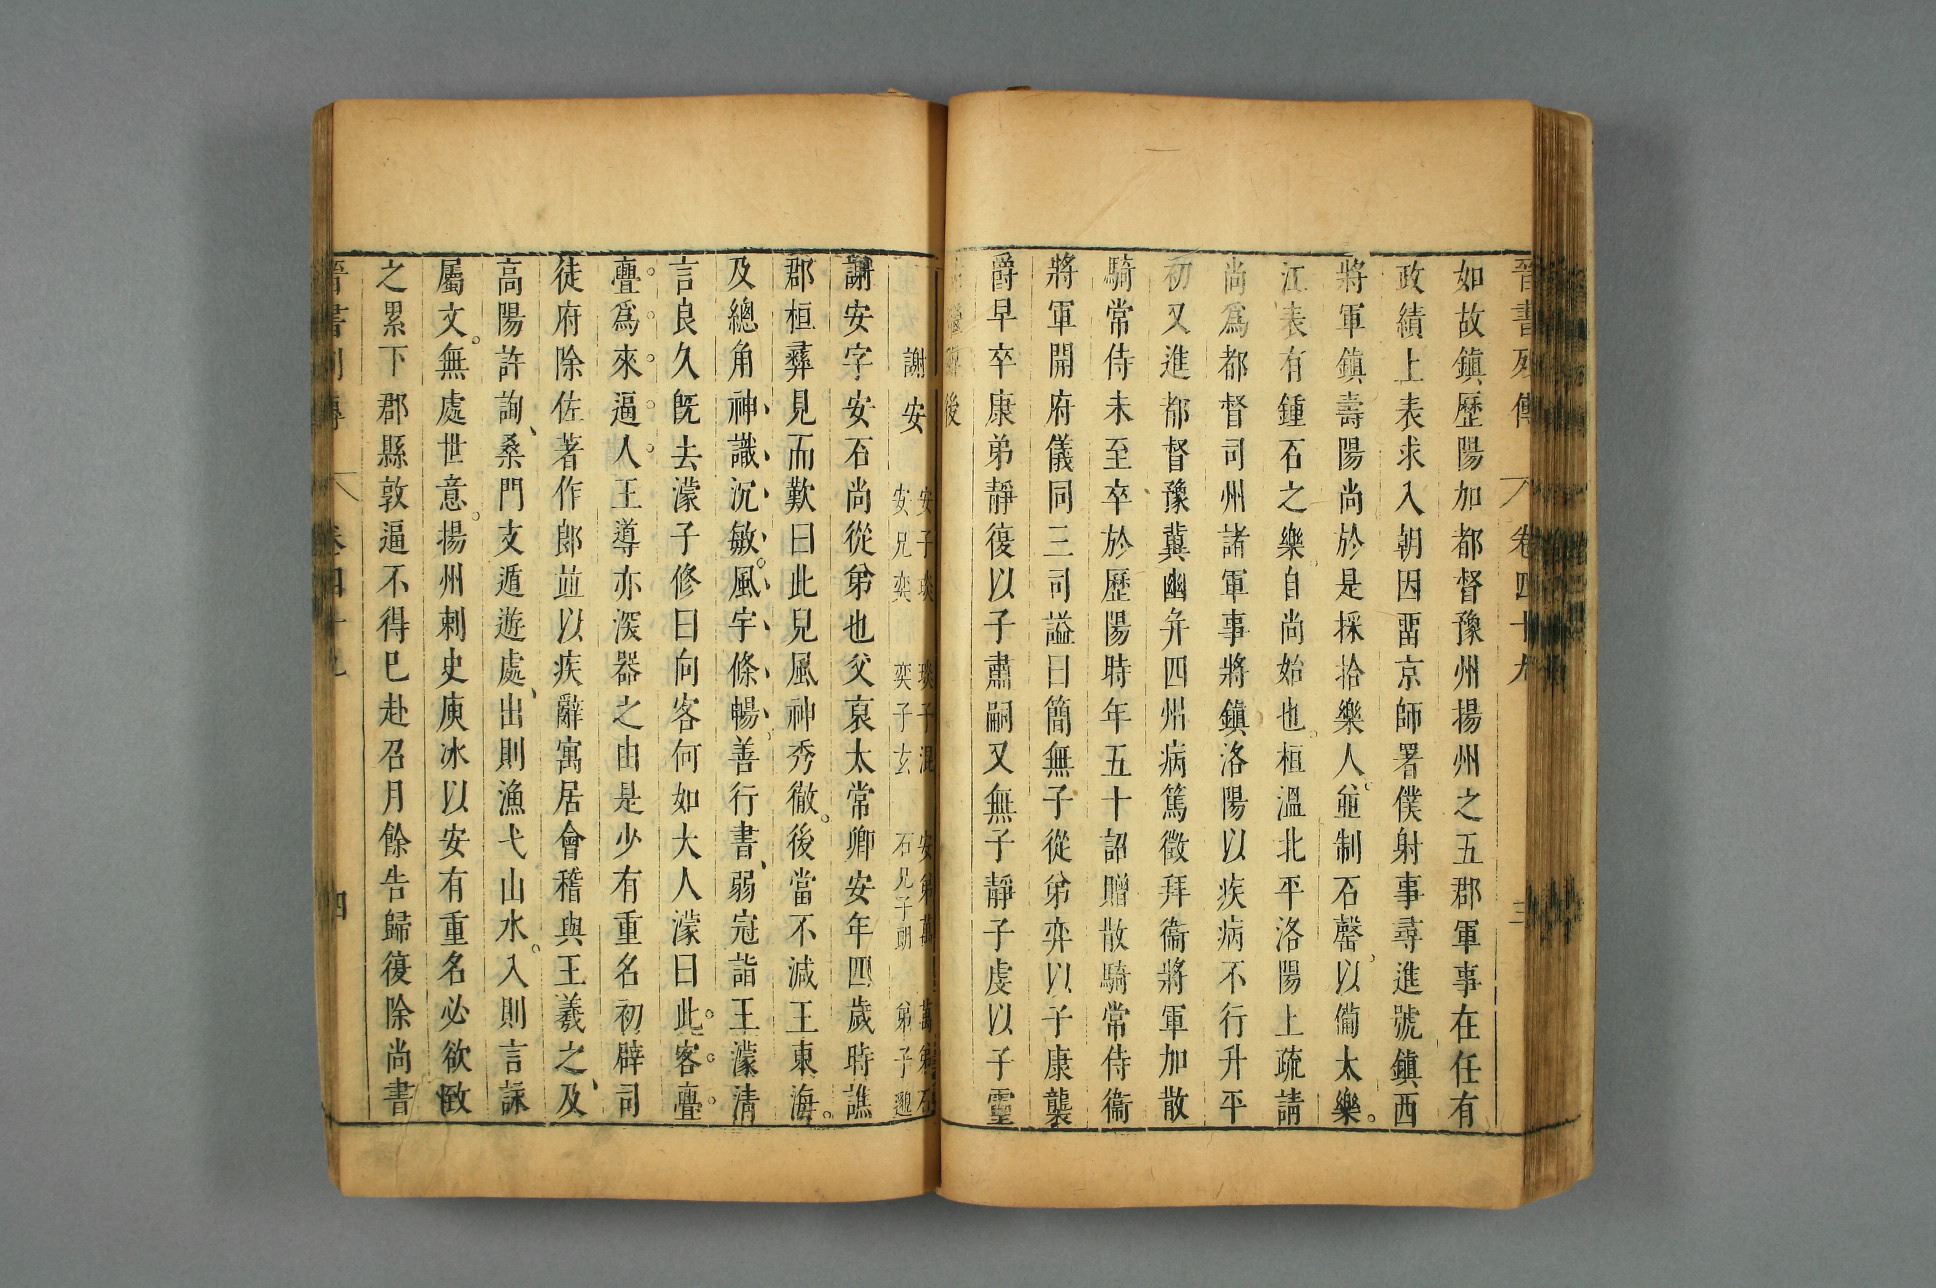 晉書列傳 卷四十九 三
如故鎮歷陽加都督豫州揚州之五郡軍事在任有
政績上表求入朝因畱京師署僕射事尋進號鎮西
將軍鎮壽陽尚於是採拾樂人。並制石罄。以備太樂。
江表有鍾石之樂。自尚始也。桓溫北平洛陽上疏請
尚爲都督司州諸軍事將鎮洛陽以疾病不行升平
初又進都督豫冀幽并四州病篤徵拜衞將軍加散
騎常侍未至卒於歷陽時年五十詔贈散騎常侍衞
將軍開府儀同三司謚曰簡無子從弟奕以子康襲
爵早卒康弟靜復以子肅嗣又無子靜子虔以子靈
後
謝安 安子琰 琰子混 安弟萬 萬弟石
安兄奕 奕子玄 石兄子朗 弟子邈
謝安字安石尚從弟也父裒太常卿安年四歲時譙
郡桓彝見而歎曰此兒風神秀徹。後當不減王東海。
及總角神識沉敏。風宇條暢。善行書、弱冠詣王濛清
言良久旣去濛子修曰向客何如大人濛曰此。客。亹。
亹。爲。來。逼。人。王導亦深器之由是少有重名初辟司
徒府除佐著作郎並以疾辭寓居會稽與王羲之、及
高陽許詢、桑門支遁遊處、出則漁弋山水。入則言詠
屬文。無處世意。揚州刺史庾冰以安有重名必欲致
之累下郡縣敦逼不得已赴召月餘告歸復除尚書
晉書列傳 卷四十九 四